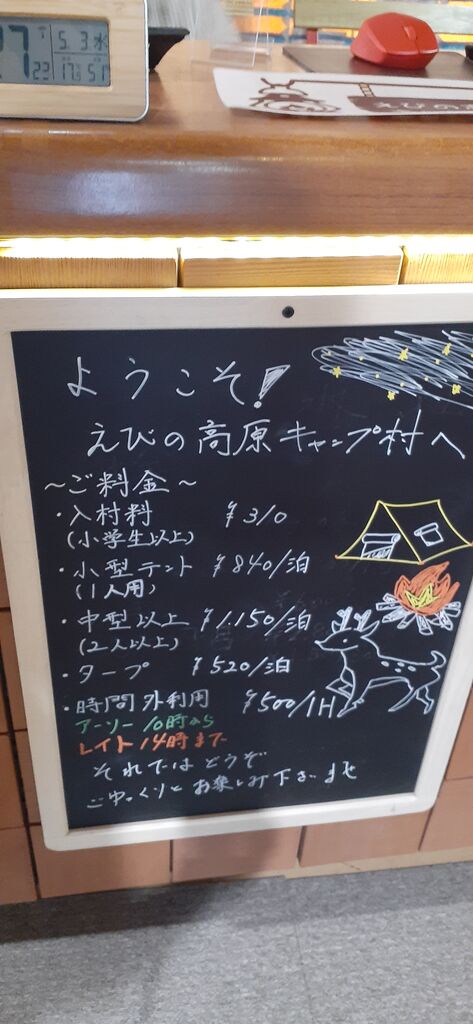 5. 3.水
23
17.5 51
えびの
ようこそ!
えびの高原キャンプ村へ
～ご料金～
・入村料 ¥310
(小学生以上)
・小型テント ¥840/泊
(1人用)
・中型以上 ¥1.150/泊
(2人以上)
・タープ ¥520/泊
・時間外利用 ¥500/1H
アーリー 10時から
レイト 14時まで
それではどうぞ
ごゆっくりとお楽しみ下さいませ